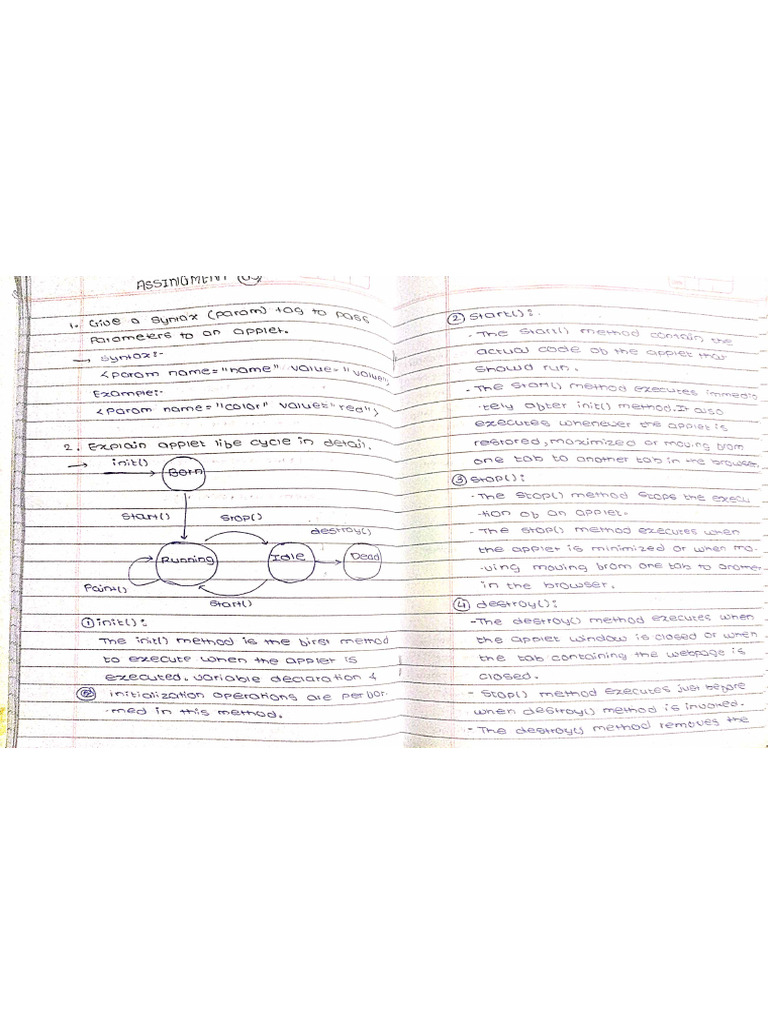 ASSINGMENT 05
1. Give a syntax (param) tag to pass
parameters to an applet.
→ syntax:-
<param name="name" value="value">
Example:-
<param name="color" value="red">
2. Explain applet life cycle in detail.
→ init()
Born
start()
stop()
destroy()
Running
Idle
Dead
Paint()
start()
① init():
The init() method is the first method
to execute when the applet is
executed. variable declaration &
② initialization operations are perfor-
-med in this method.
② start():
- The start() method contain the
actual code of the applet that
should run.
- The start() method executes immedia
-tely after init() method. It also
executes whenever the applet is
restored, maximized or moving from
one tab to another tab in the browser.
③ stop():
- The stop() method stops the execu
-tion of an applet.
- The stop() method executes when
the applet is minimized or when mo-
-ving moving from one tab to another
in the browser.
④ destroy():
- The destroy() method executes when
the applet window is closed or when
the tab containing the webpage is
closed.
- stop() method executes just before
when destroy() method is invoked.
- The destroy() method removes the